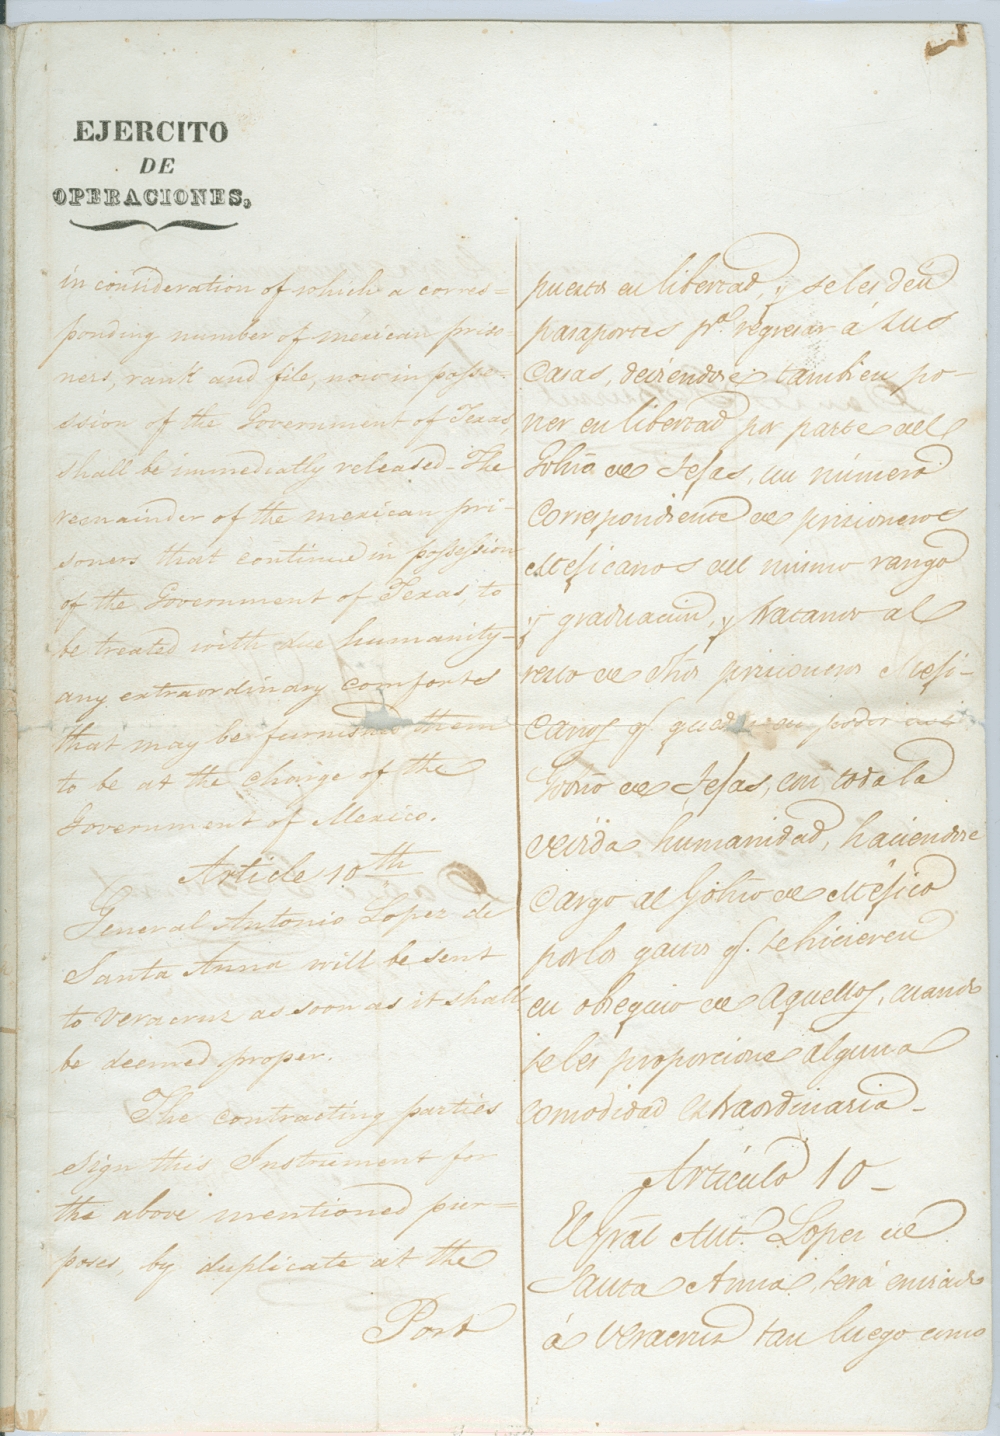 EJERCITO
DE
OPERACIONES,
in consideration of which a corres-
ponding number of mexican priso-
ners, rank and file, now in posse-
ssion of the Government of Texas
shall be immediatly released - The
remainder of the mexican pri-
soners that continue in possession
of the Government of Texas, to
be treated with due humanity -
any extraordinary comforts
that may be furnished them
to be at the charge of the
Government of Mexico.
Article 10th
General Antonio Lopez de
Santa Anna will be sent
to Veracruz as soon as it shall
be deemed proper.
The contracting parties
sign this Instrument for
the above mentioned pur-
poses, by duplicate at the
Port
puestos en libertad, y se les den
pasaportes pa. regresar á sus
Casas, deviendose tambien po-
ner en libertad por parte del
Gobno. de Tejas, un número
Correspondiente de prisioneros
Mejicanos del mismo rango
y graduacion, y tratando al
resto de dhos prisioneros Meji-
canos q. queden en poder del
Gobno de Tejas, con toda la
devida humanidad, haciendose
Cargo al Gobno de Méjico
por los gastos q. se hicieren
en obsequio de Aquellos, cuando
se les proporcione alguna
comodidad extraordinaria -
Artículo 10 -
El Gral Ant. Lopez de
Santa Anna, será enviado
á Veracruz tan luego como